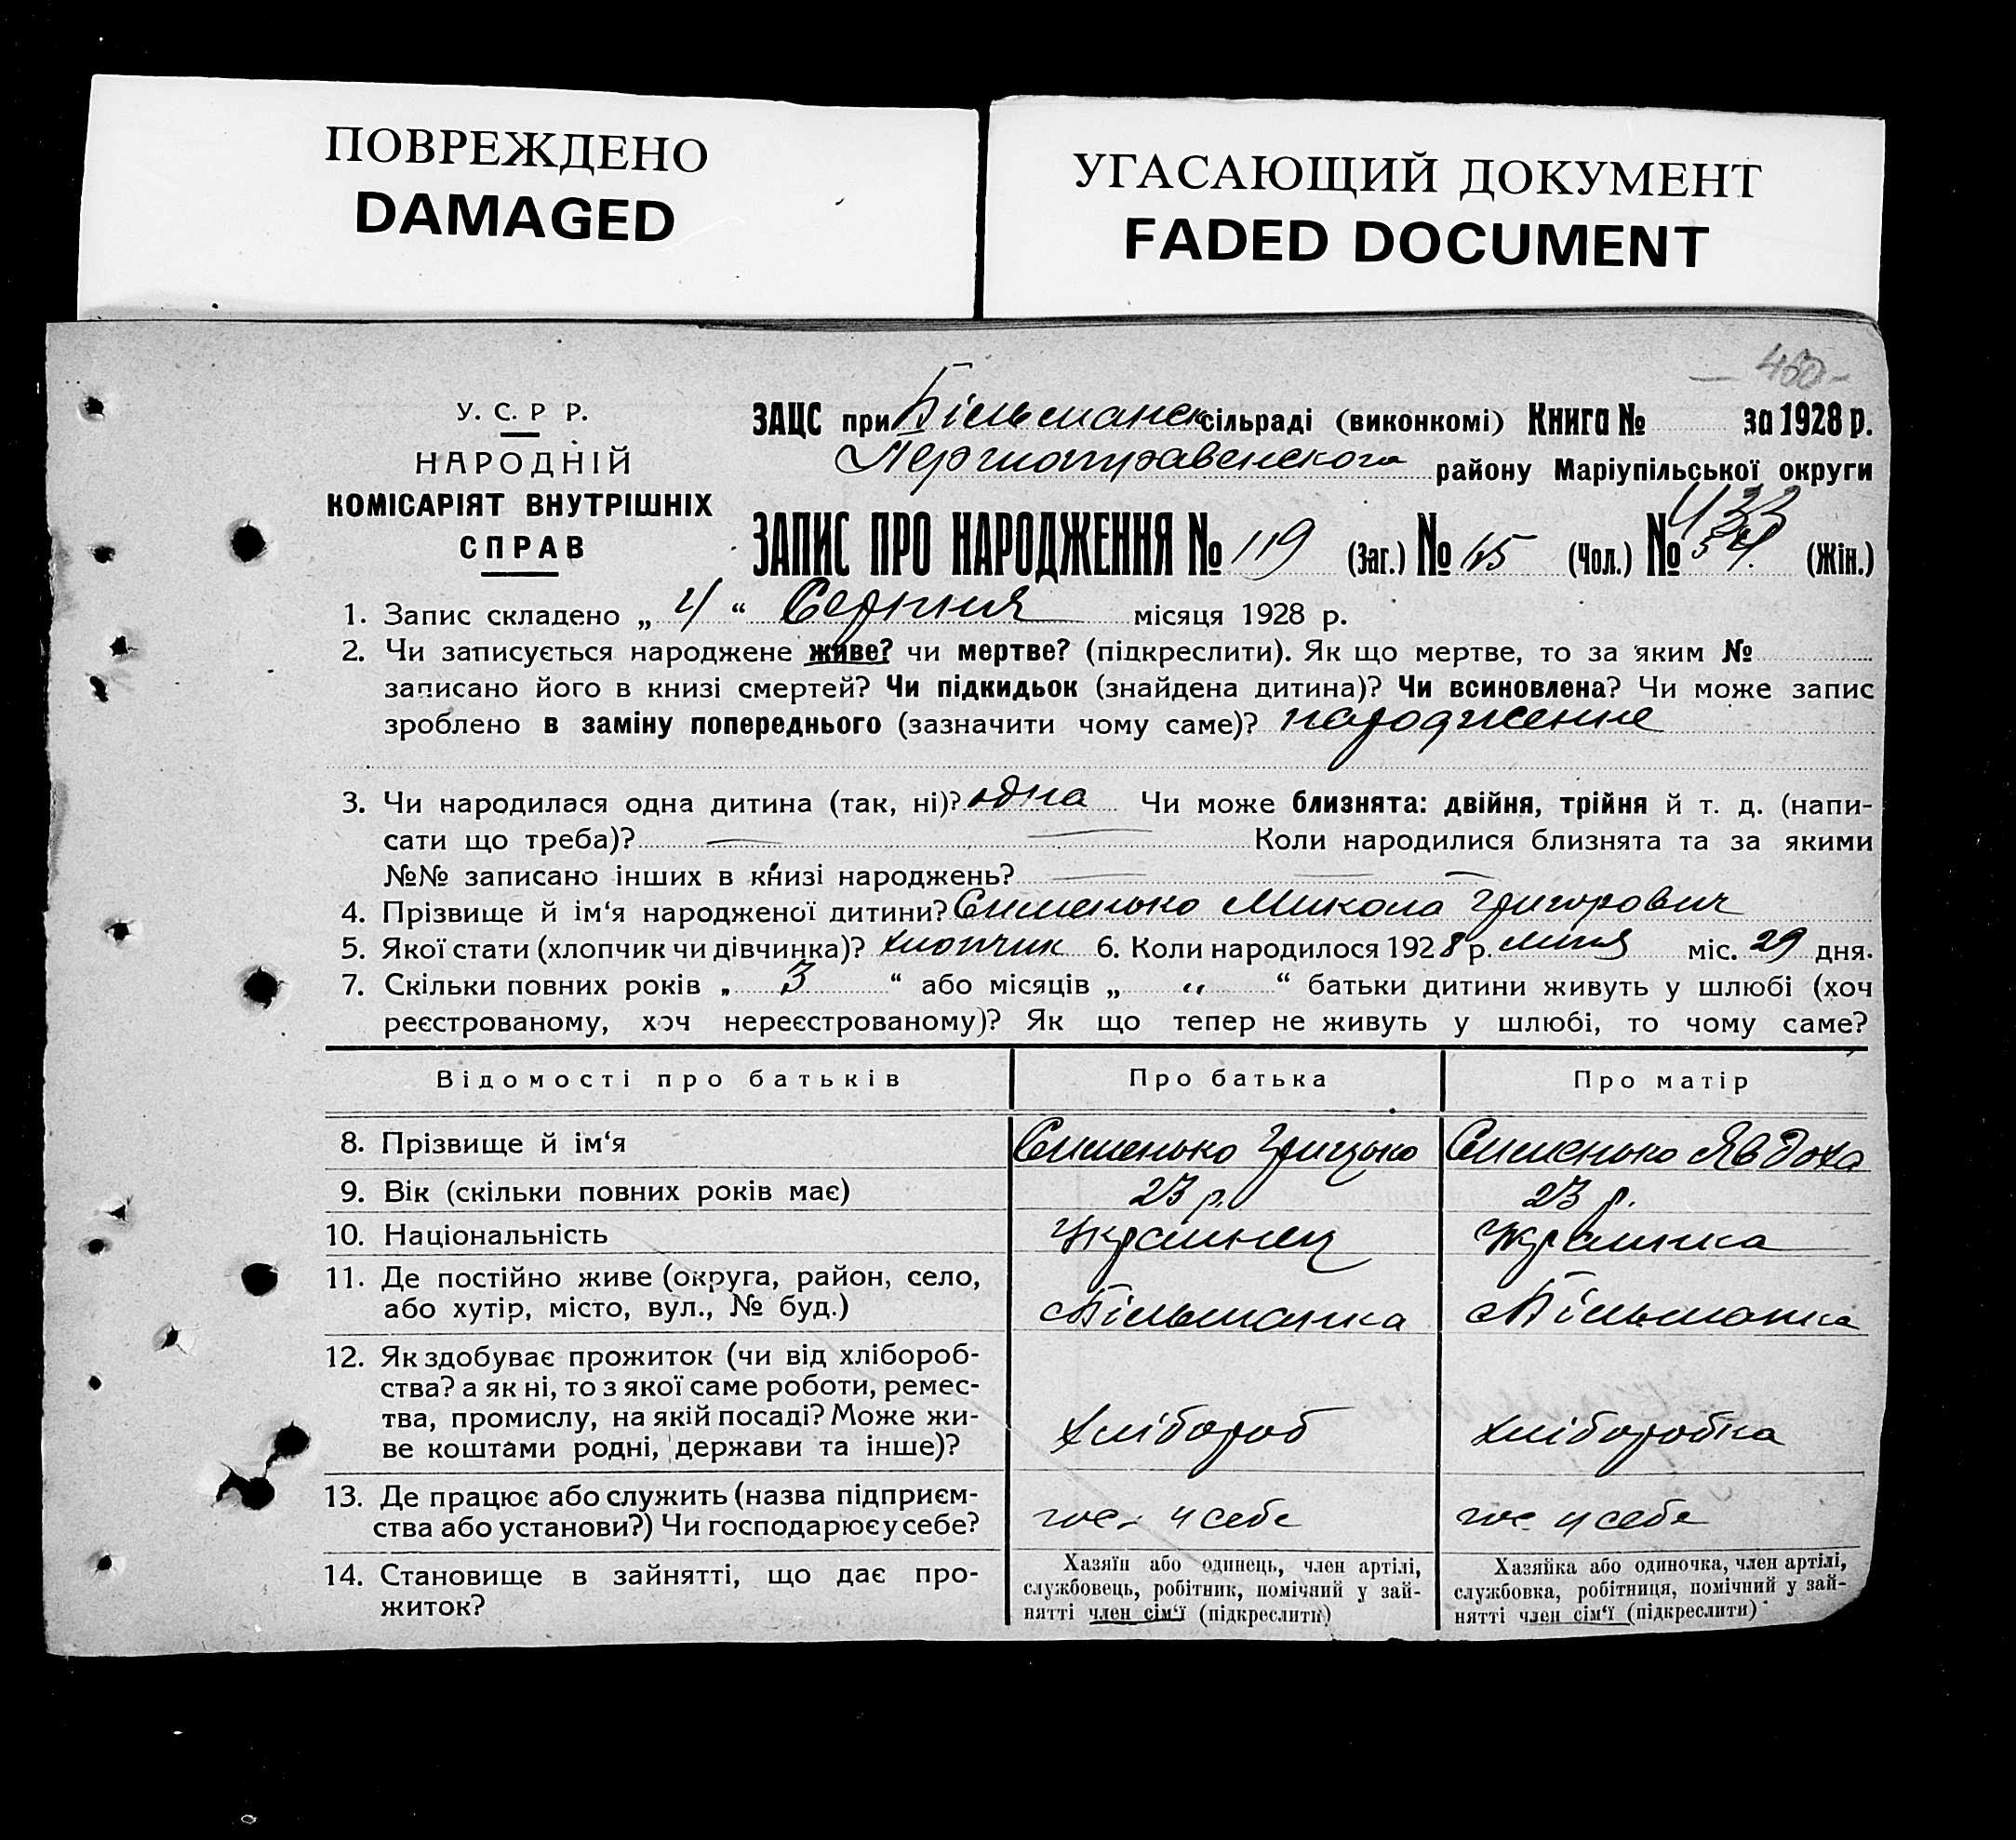 ПОВРЕЖДЕНО
DAMAGED
УГАСАЮЩИЙ ДОКУМЕНТ
FADED DOCUMENT
460
У. С. Р Р.
НАРОДНІЙ
КОМІСАРІЯТ ВНУТРІШНІХ
СПРАВ
ЗАЦС при Більманск сільраді (виконкомі) Книга № за 1928 р.
району Маріупільської округи
433
ЗАПИС ПРО НАРОДЖЕННЯ № 119 (Заг.) № 65 (Чол.) № 54 (Жін.)
1. Запис складено „ 4 “ Серпня місяця 1928 р.
2. Чи записується народжене живе? чи мертве? (підкреслити). Як що мертве, то за яким №
записано його в книзі смертей? Чи підкидьок (знайдена дитина)? Чи всиновлена? Чи може запис
зроблено в заміну попереднього (зазначити чому саме)? народження
3. Чи народилася одна дитина (так, ні)? одна Чи може близнята: двійня, трійня й т. д. (напи-
сати що треба)? — — Коли народилися близнята та за якими
№№ записано інших в книзі народжень? — — —
4. Прізвище й ім‘я народженої дитини? Симонько Микола Григорович
5. Якої стати (хлопчик чи дівчинка)? хлопчик 6. Коли народилося 1928 р. липня міс. 29 дня.
7. Скільки повних років „ 3 “ або місяців „ “ “ батьки дитини живуть у шлюбі (хоч
реєстрованому, хоч нереєстрованому)? Як що тепер не живуть у шлюбі, то чому саме?
Відомості про батьків Про батька Про матір
8. Прізвище й ім‘я Симонько Грицько Симонько Явдоха
9. Вік (скільки повних років має) 23 р. 23 р.
10. Національність Украинец Украинка
11. Де постійно живе (округа, район, село,
або хутір, місто, вул., № буд.) с Більманка с Більманка
12. Як здобуває прожиток (чи від хлібороб-
ства? а як ні, то з якої саме роботи, ремес-
тва, промислу, на якій посаді? Може жи-
ве коштами родні, держави та інше)? Хлібороб хліборобка
13. Де працює або служить (назва підприєм-
ства або установи?) Чи господарює у себе? гос. у себе гос. у себе
14. Становище в зайнятті, що дає про-
житок?
Хазяїн або одинець, член артілі,
службовець, робітник, помічний у зай-
нятті член сім‘ї (підкреслити)
Хазяйка або одиночка, член артілі,
службовка, робітниця, помічний у зай-
нятті член сім‘ї (підкреслити)